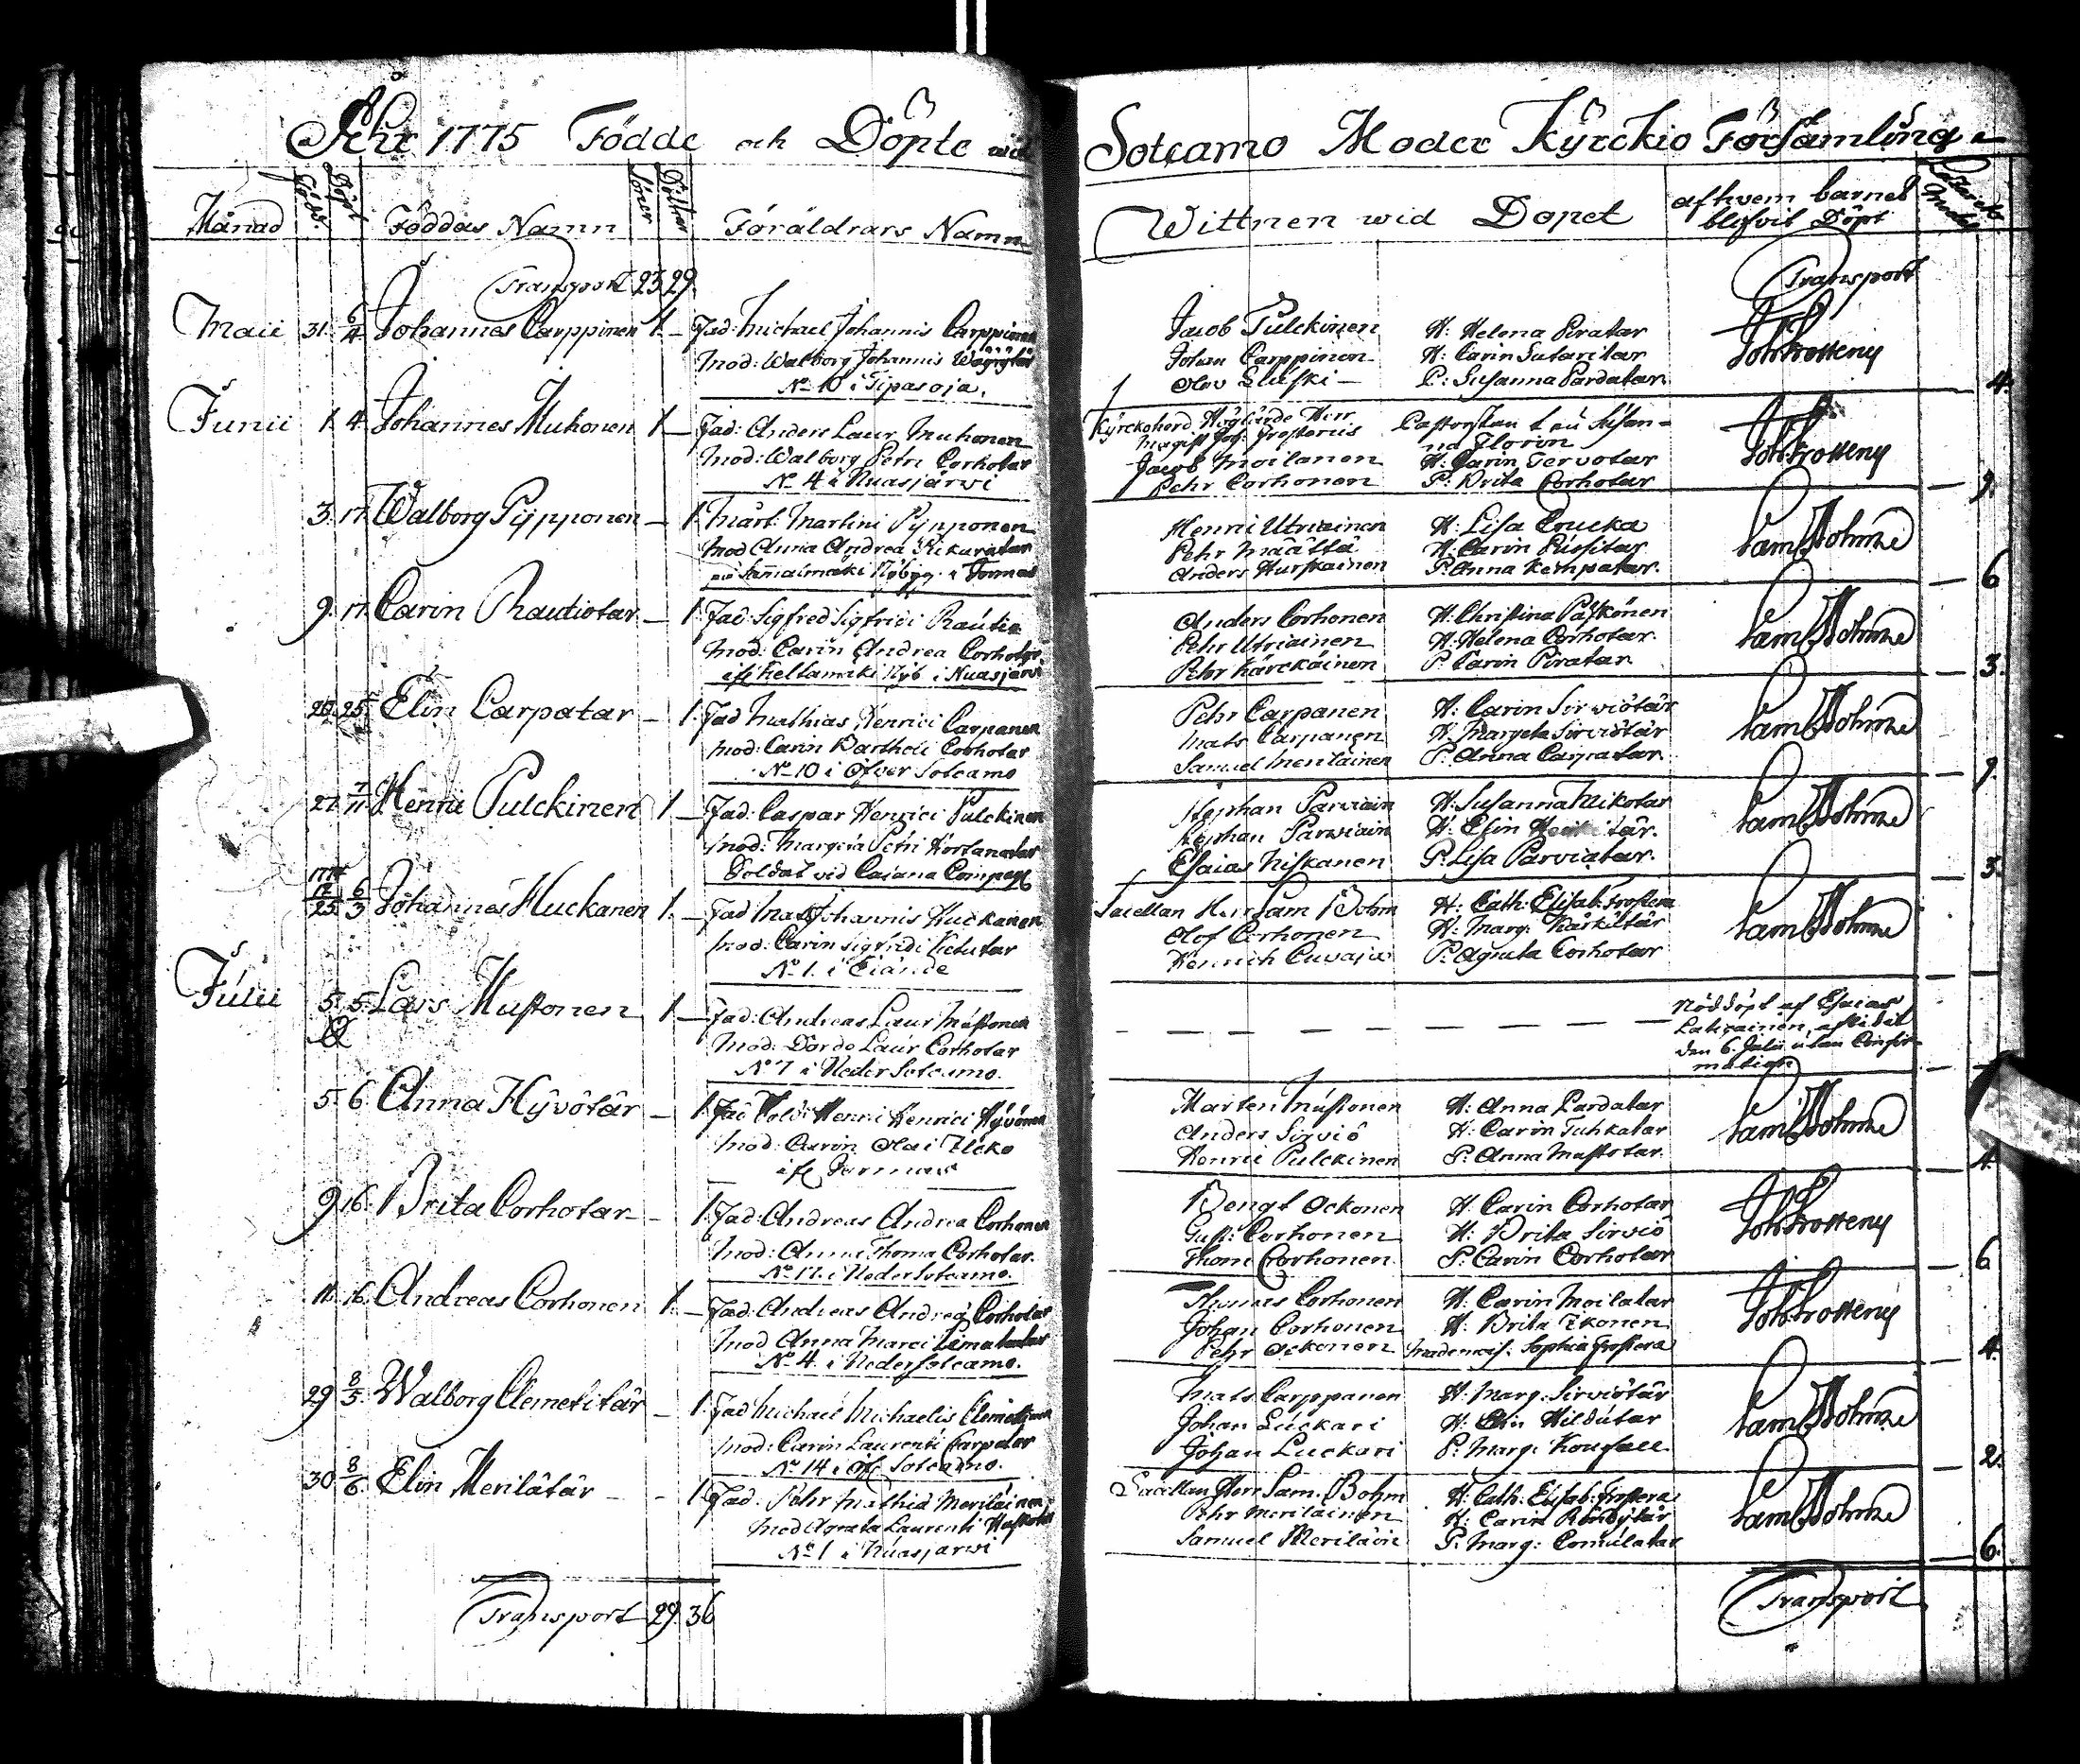 Åhr 1775 Födde och Döpte wid
Månad Födde Döpt Föddas Namn Söner Döttrar Föräldrars Namn
Transport 23 29.
Maii 31. 6/4 Johannes Carppinen 1. — Fad: Michael Johannis Carppinen
Mod: Walborg Johannis
No 10 i Tipasoja.
Junii 1. 4. Johannes Muhonen 1. — Fad: Anders Laur. Muhonen
Mod: Walborg Petri Corhotar
No 4 i Nuasjärwi
3. 17. Walborg Pypponen — 1. Mårt: Martini Pypponen
Mod Anna Andreæ
i Sormus
9. 17. Carin Rautiotar — 1. Fad: Sigfred Sigfridi Rautio
Mod: Carin Andreæ Corhotar
Nyb i Nuasjärwi
20. 25. Elin Carpatar — 1. Fad Mathias Henrici Carpanen
Mod: Carin Barthol: Corhotar
No 10 i Öfver Sotcamo
27. 7/11. Henric Pulckinen 1. — Fad: Caspar Henrici Pulckinen
Mod: Margeta Petri
Soldat vid Cajana Compagn
1774 12/25 6/3 Johannes Huckanen 1. — Fad Mats Johannis Huckanen
Mod: Carin Sigfridi
No 1. i
Julii 5. 5. Lars Mustonen 1. — Fad: Andreas Laur Mustonen
Mod: Dordo Laur Corhotar
No 7 i Neder Sotcamo.
5. 6. Anna Hyvötär — 1. Fad Sold: Henric Henrici Hyvönen
Mod: Carin Olai
9. 16. Brita Corhotar — 1. Fad: Andreas Andreæ Corhonen
Mod: Anna Thomæ Corhotar.
No 17. i Neder Sotcamo.
11. 16. Andreas Corhonen 1. — Fad: Andreas Andreæ
Mod Anna Marci
No 4. i Neder Sotcamo.
29 8/5. Walborg Clemetitär — 1. Fad Michael Michaelis
Mod: Carin Laurentii Carpatar
No 14 i Öfv Sotcamo.
30 8/6. Elin Merilätär — 1. Fad: Pehr Mathiæ Meriläinen
Mod Agneta Laurentii
No 1 i Nuasjärwi
Transport 29. 36
Sotcamo Moder Kyrckio Församling
Wittnen wid Dopet af hvem barnet
blefvit Döpt
Transport
Jacob Pulckinen H: Helena Piratar
Johan Carppinen H: Carin Joh: Frosterus
Olov P: Susanna Pardatar 4.
Kyrckoherd Högl: Herr Pastorskan
Magist Joh: Frosterus
Jacob Moilanen H: Carin Tervotar Joh: Frosterus
Pehr Corhonen P: Brita Corhotar 9.
Henric Utriainen H: Lisa
Pehr Määttä H: Carin Sam Bohm
Anders Hurskainen P: Anna Kempatar. 6
Anders Corhonen H: Christina Päkkönen
Pehr Utriainen H: Helena Corhotar Sam Bohm
Pehr Kärckäinen P: Carin Piratar 3.
Pehr Carpanen H: Carin Sirviötär
Mats Carpanen H: Margeta Sirviötär Sam Bohm
Samuel Meriläinen P: Anna Carpatar 9.
Stephan Parviain H: Susanna Mikotar
Stephan Parviain H: Elin Sam Bohm
Esaias Niskanen P: Lisa Parviatar. 5.
Sacellan Herr Sam Bohm H: Cath: Elisab: Frostera
Olof Corhonen H: Marg: Sam Bohm
Henrich P: Agneta Corhotar
Nöddöpt af Esaias
afledit
den 6. Julii utan Confir-
mation
Mårten Mustonen H: Anna Pardatar
Anders Sirviö H: Carin Tuhkatar Sam Bohm
Henric Pulckinen P: Anna Mustotar. 4.
Bengt Ockonen H: Carin Corhotar
Gust: Corhonen H: Brita Sirviö Joh: Frosterus
Thom Corhonen P: Carin Corhotar 6
Thomas Corhonen H: Carin Moilatar
Johan Corhonen H: Brita Joh: Frosterus
Pehr Ockonen Mademois: Sophia Frostera 4.
Mats Carppanen H: Marg: Sirviötär
Johan Luckari H: Elin Hildutar Sam Bohm
Johan Luckari P: Marg: 2.
Sacellan Herr Sam. Bohm H: Cath: Elisab: Frostera
Pehr Meriläinen H: Carin Sam Bohm
Samuel Meriläin P: Marg: Comulatar 6.
Transport